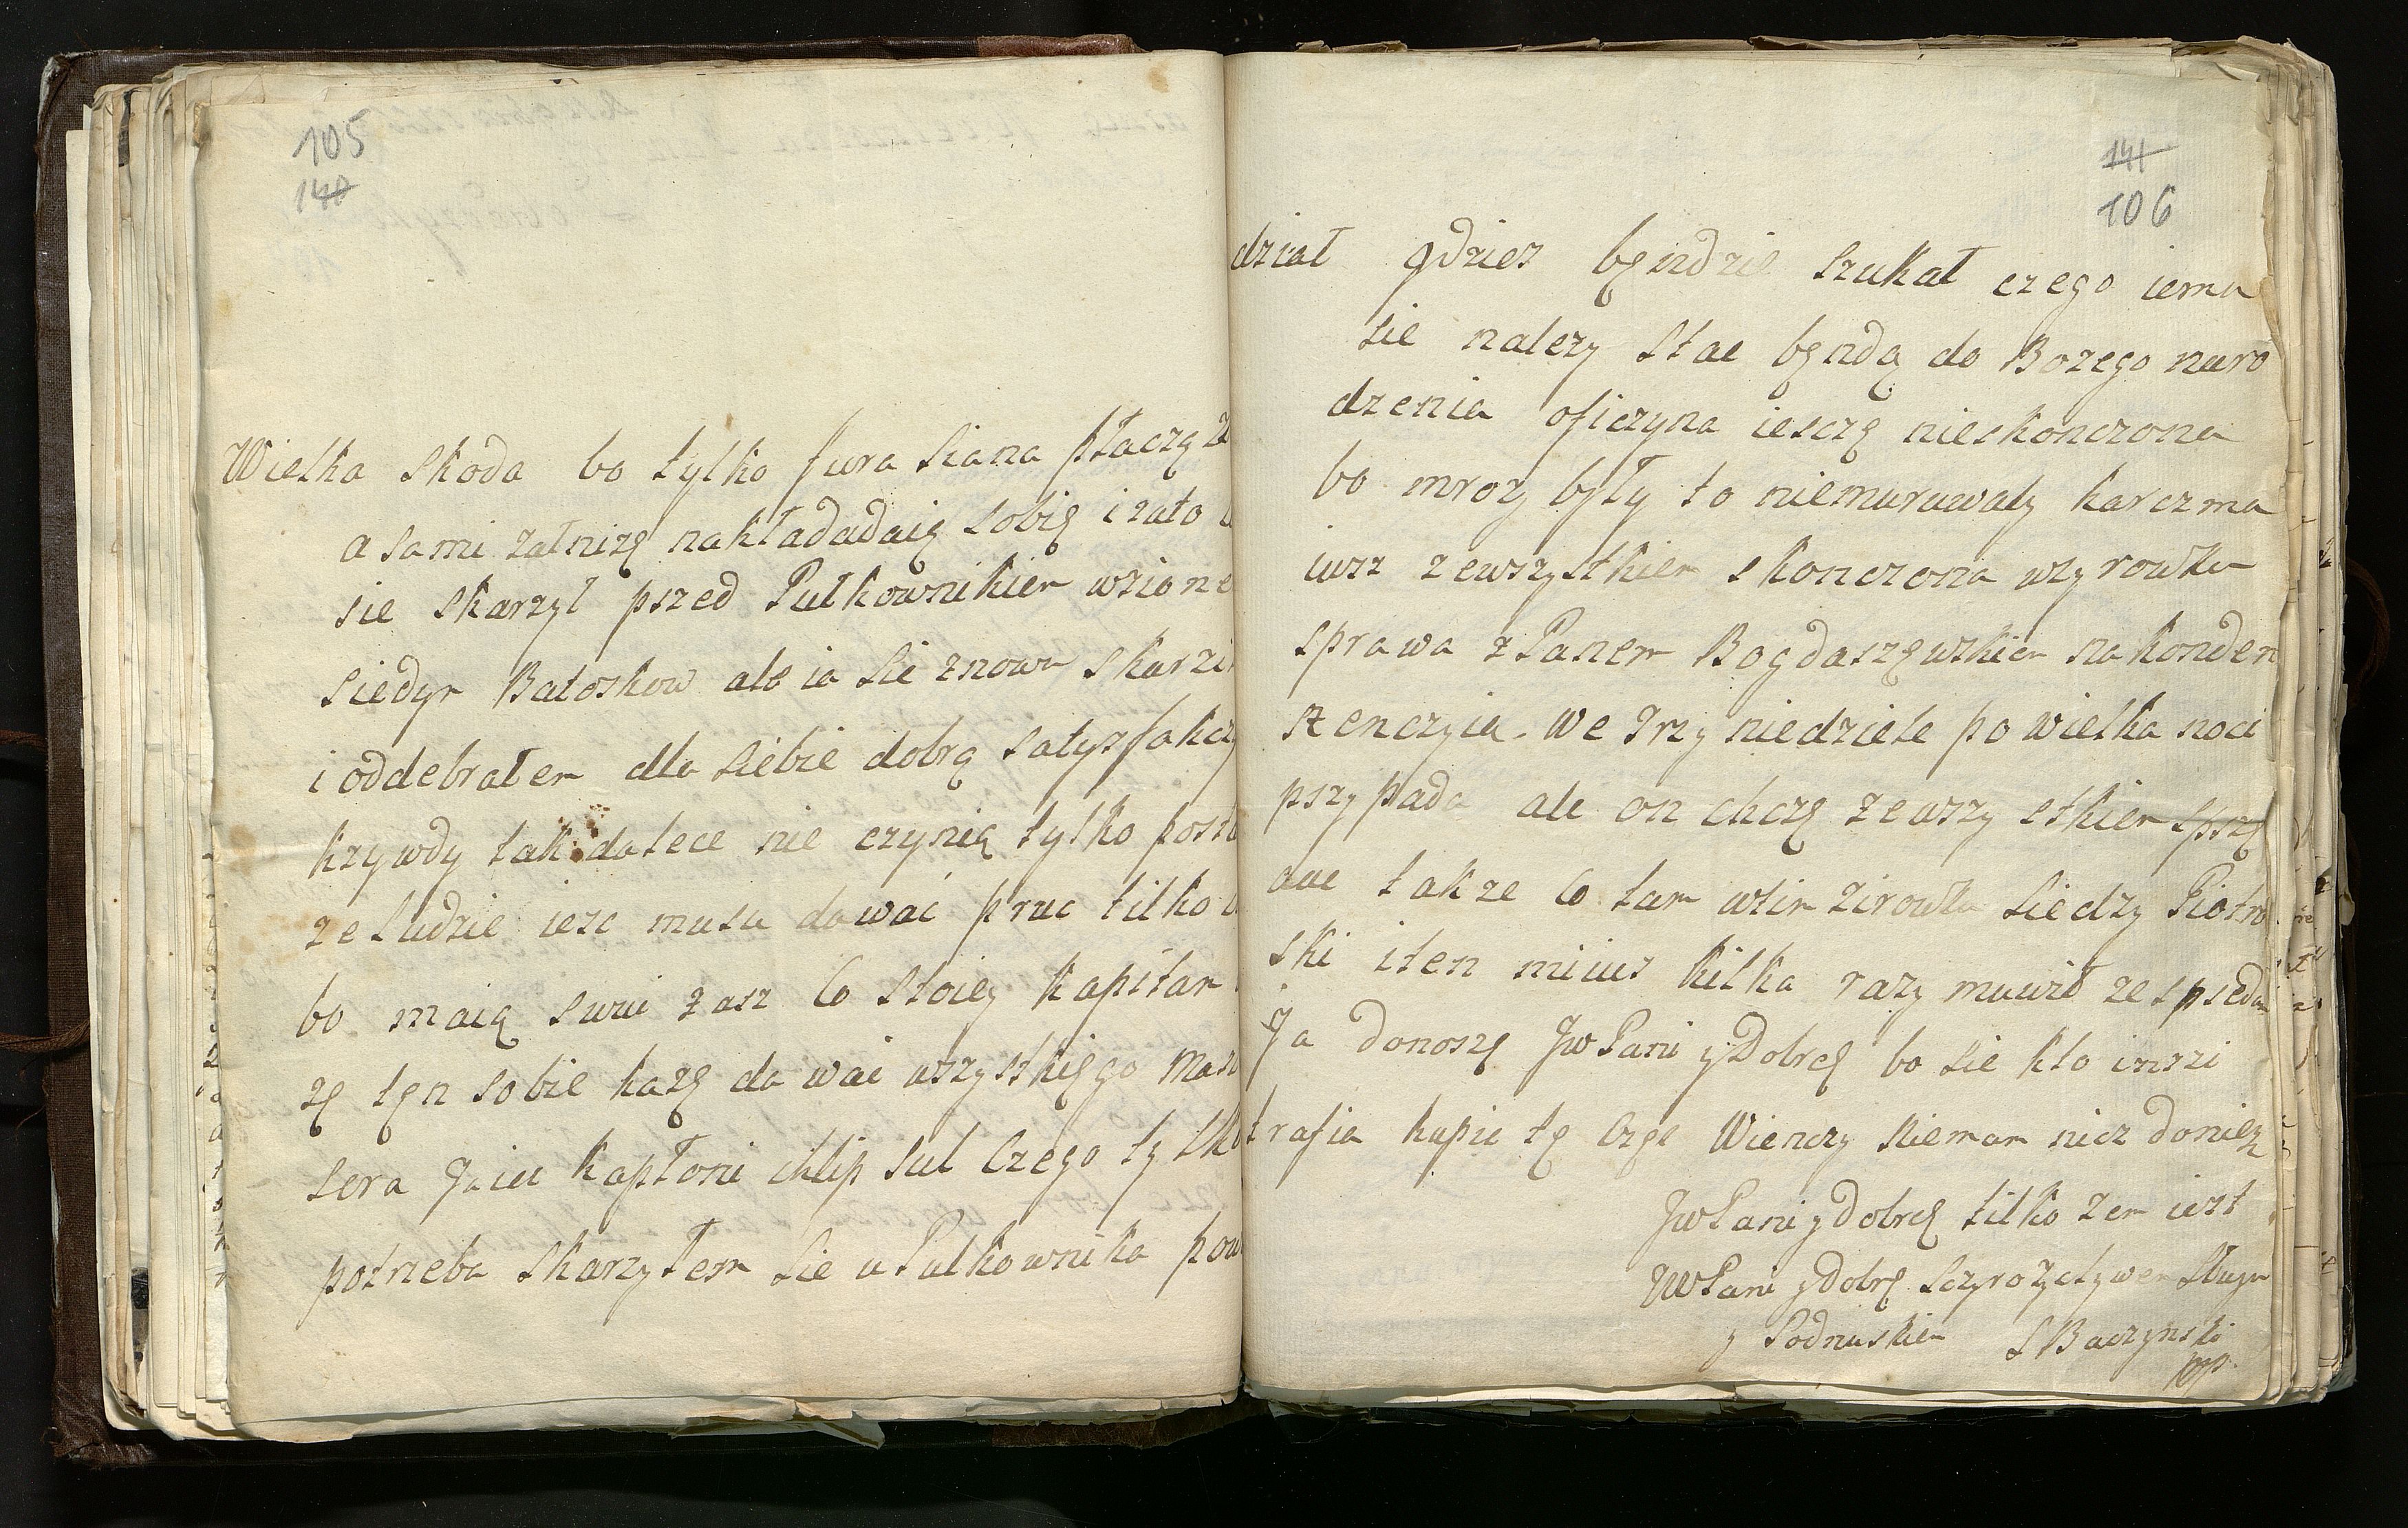 105
140
Wielka skoda bo tylko fura siana płaczą
a sami załnizę nakładadaię sobię i zato
sie skarzył pszed Pułkownikiem wzione
siedym Batoskow ale ia sie znowu skarzi
i oddebrałem dla siebie dobrą satyszfakczy
krzywdy tak dalece nie czynią tylko posto
ze ludzie iesc muszu dawać pruc tilko
bo maią swui zasz Co stoiey kapitan
zę tęn sobie kazę dawai wszyszkięgo Mas
sera Jaiu kapłoni chlip sul Czego tylko
potrzeba skarzyłem sie u Pulkownika pow
141
106
dział gdziez bęndzie szukał czego iemu
sie nalezy stac będą do Bozego naro
dzenia oficzyna iesczę nieskonczona
bo mrozy były to niemuruwaly karczma
iusz zewszystkiem skonczona wzyrowku
sprawa z Panem Bogdaszewskiem na konden
szenczyia. We Trzy niedziele po wielka noci
pszypada ale on chczę zewszystkiem spszę
dac takze Co tam wtim zirowku siedzy Piotro
ski iten miius kilka razy muwił ze spseda
Ja donoszę JwPani yDobrcę bo sie kto inszi
trafia kupic tę Czę Wienczy niemam nicz doniez
JwPani yDobrcę tilko zem iest
JWPani yDobrę sczyrozyctywem Slugu
y Podnuskiem SBaczynski
mp.